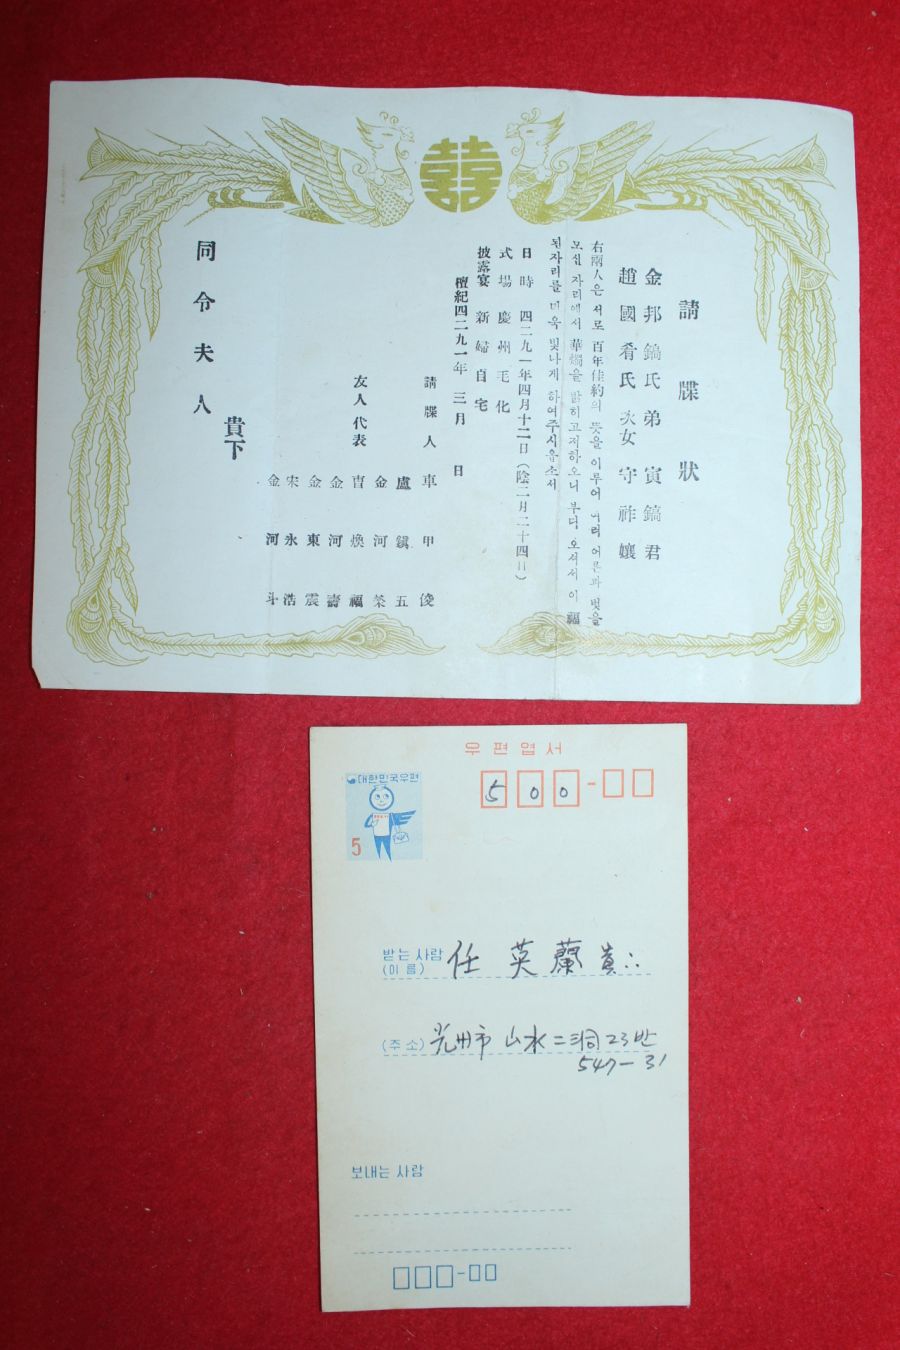 囍
請牒狀
金邦鎬氏弟寅鎬君
趙國肴氏次女守祚孃
右兩人은 서로 百年佳約의 뜻을 이루어 여러 어른과 벗을
모신 자리에서 華燭을 밝히고저하오니 부디 오셔서 이 福
된자리를 더욱 빛나게 하여주시옵소서
日時 四二九一年四月十二日(陰二月二十四日)
式場 慶州毛化
披露宴 新婦自宅
檀紀四二九一年 三月 日
請牒人 車甲俊
盧鎭五
金河榮
友人代表 曺煥福
金河壽
金東震
宋永浩
金河斗
貴下
同令夫人
우편엽서
대한민국우편
5
500-
받는 사람
(이름)
任英蘭 貴下
(주소)
光州市 山水二洞 23반
547-31
보내는 사람